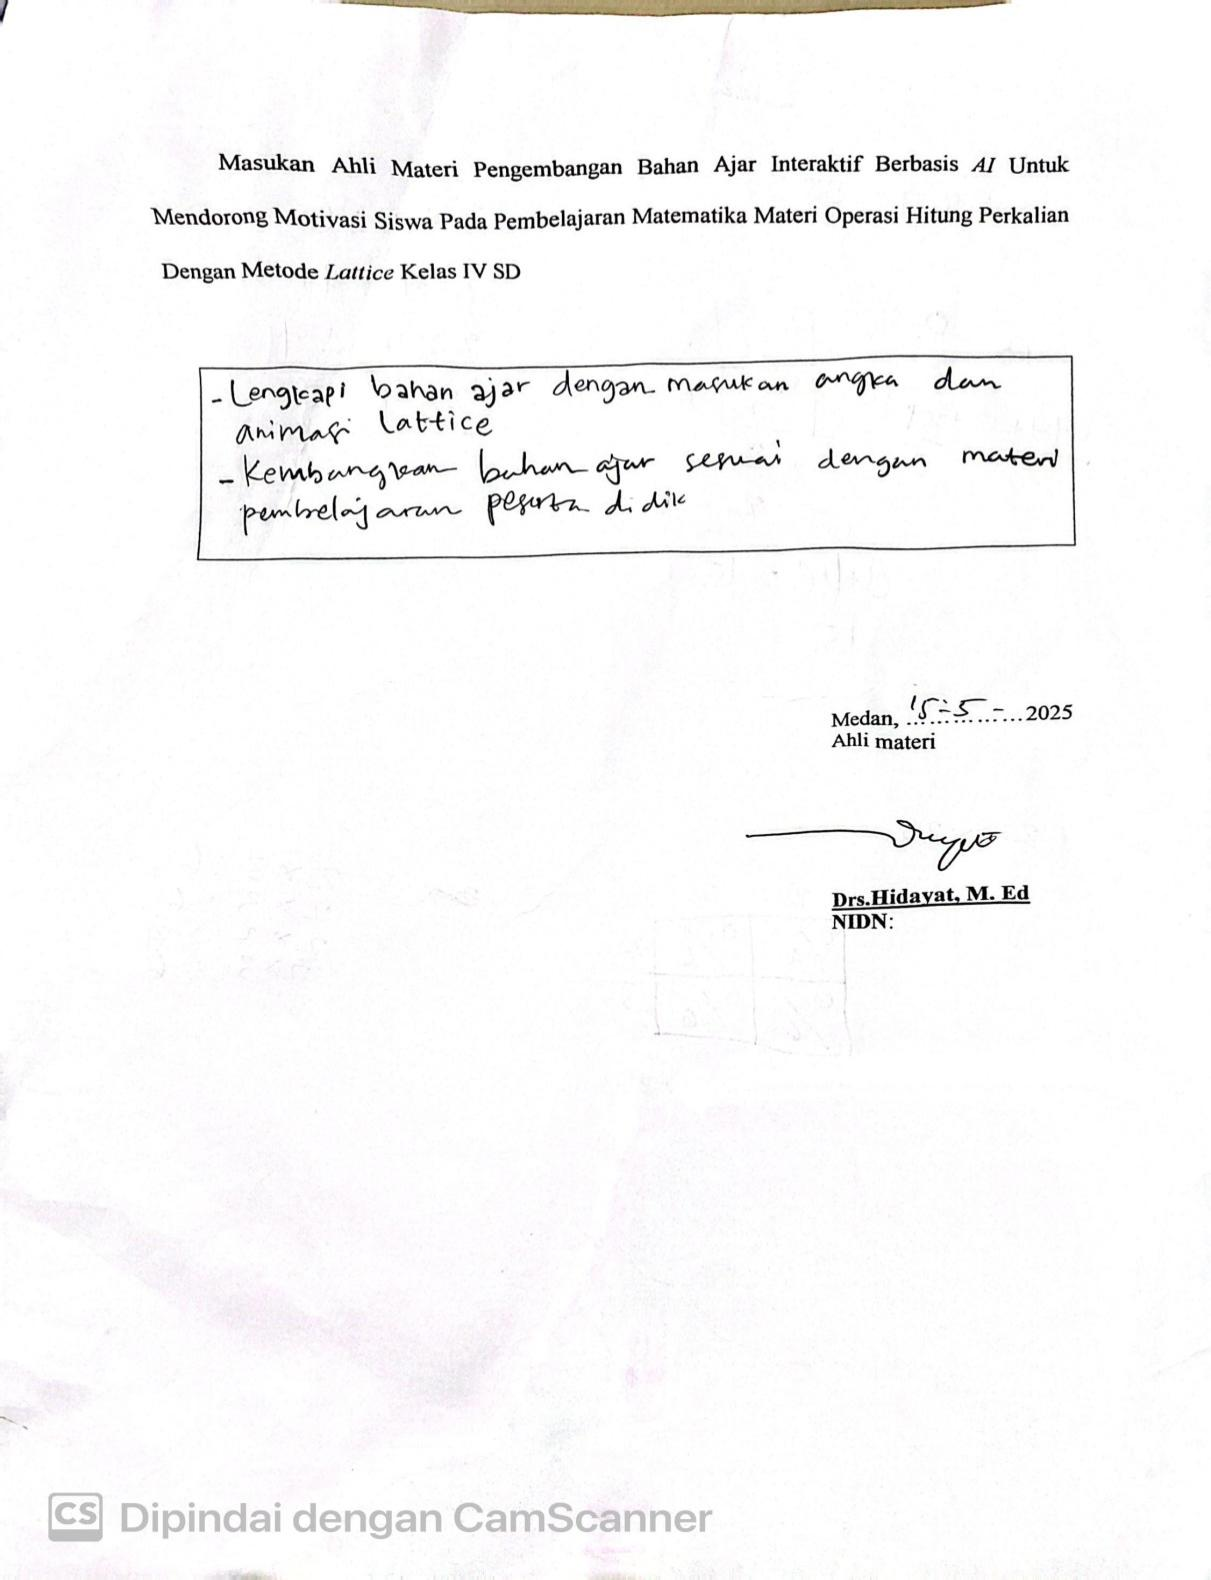 Masukan Ahli Materi Pengembangan Bahan Ajar Interaktif Berbasis AI Untuk
Mendorong Motivasi Siswa Pada Pembelajaran Matematika Materi Operasi Hitung Perkalian
Dengan Metode Lattice Kelas IV SD
- Lengkapi bahan ajar dengan masukan angka dan
animasi lattice
- Kembangkan bahan ajar sesuai dengan materi
pembelajaran peserta didik
Medan, 15-5-...2025
Ahli materi
Drs.Hidayat, M. Ed
NIDN:
CS Dipindai dengan CamScanner